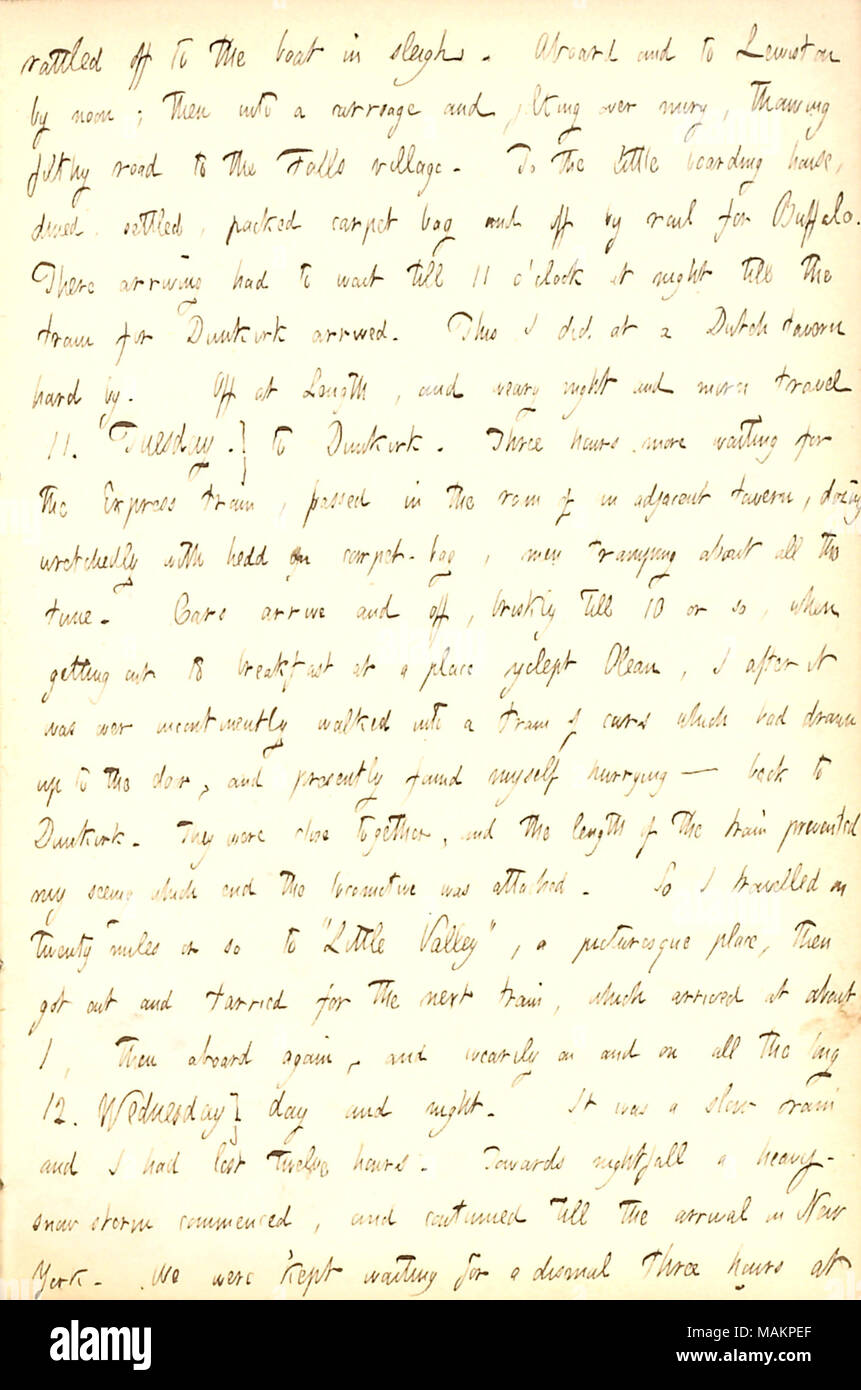 rattled off to the boat in sleigh. Aboard and to Lewiston
by noon; then into a carriage and jolting over miry, thawing
filthy road to the Falls village. To the little boarding house,
dined, settled, packed carpet bag and off by rail for Buffalo.
There arriving had to wait till 11 o'clock at night till the
train for Dunkirk arrived. This I did at a Dutch tavern
hard by. Off at length, and weary night and morn travel
11. Tuesday.} to Dunkirk. Three hours more waiting for
the Express train, passed in the room of an adjacent tavern, dozing
wretchedly with head on carpet-bag, men tramping about all the
time. Cars arrive and off, briskly till 10 or so, when
getting out to breakfast at a place yclept Olean, I after it
was over incontinently walked into a train of cars which had drawn
up to the door, and presently found myself hurrying — back to
Dunkirk. They were close together, and the length of the train prevented
my seeing which end the locomotive was attached. So I travelled on
twenty miles or so to "Little Valley", a picturesque place, then
got out and tarried for the next train, which arrived at about
1, then aboard again, and wearily on and on all the long
12. Wednesday} day and night. It was a slow train
and I had lost twelve hours. Towards nightfall a heavy
snow storm commenced, and continued till the arrival in New
York. We were kept waiting for a dismal three hours at
alamy
Image ID: MAKPEF
www.alamy.com